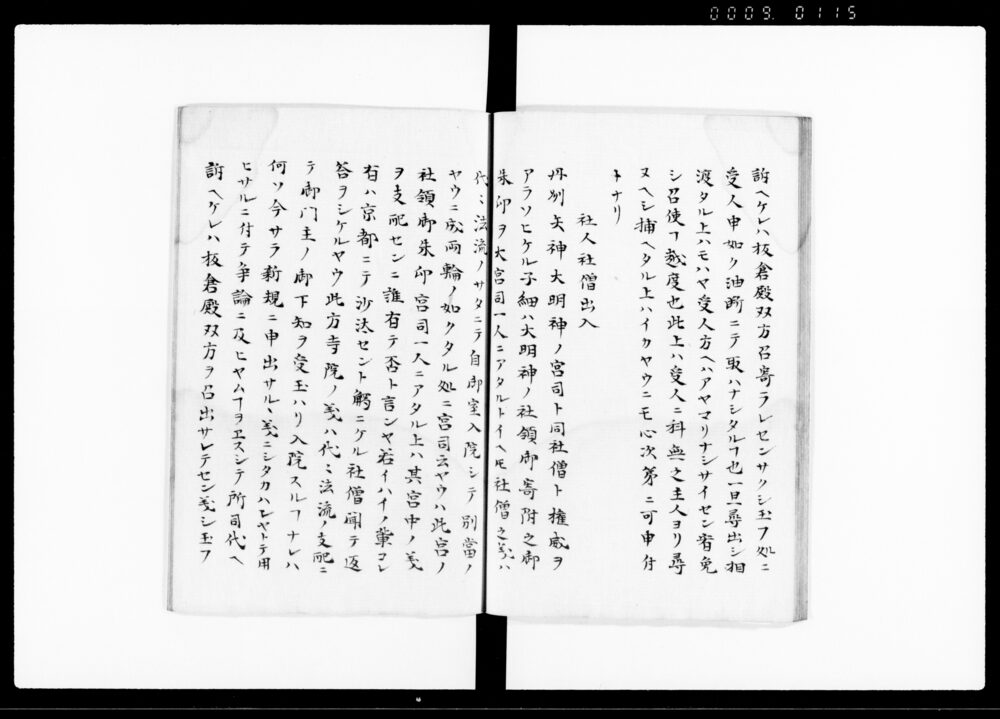 0009. 0115
訴ヘケレハ板倉殿双方召寄ラレセンサクシ玉フ処ニ
受人申如ク油断ニテ取ハナシタルヿ也一旦尋出シ相
渡タル上ハモハヤ受人方ヘハアヤマリナシサイセン宥免
シ召使ヿ越度也此上ハ受人ニ科無之主人ヨリ尋
ヌヘシ捕ヘタル上ハイカヤウニモ心次第ニ可申付
トナリ
社人社僧出入
丹別矢神大明神ノ宮司ト同社僧ト権威ヲ
アラソヒケル子細ハ大明神ノ社領御寄附之御
朱印ヲ大宮司一人ニアタルトイヘ𪜈社僧之義ハ
代〻法流ノサタニテ自御室入院シテ別當ノ
ヤウニ成両輪ノ如クタル処ニ宮司云ヤウハ此宮ノ
社領御朱印宮司一人ニアタル上ハ其宮中ノ義
ヲ支配センニ誰有テ否ト言ンヤ若イハイノ輩コレ
有ハ京都ニテ沙汰セント觸ニケル社僧聞テ返
答ヲシケルヤウ此方寺院ノ義ハ代〻法流ノ支配ニ
テ御門主ノ御下知ヲ受玉ハリ入院スルヿナレハ
何ソ今サラ新規ニ申出サル、義ニシタカハレヤトテ用
ヒサルニ付テ争論ニ及ヒヤムヿヲヱスシテ所司代ヘ
訴ヘケレハ板倉殿双方ヲ召出サレテセン義シ玉フ